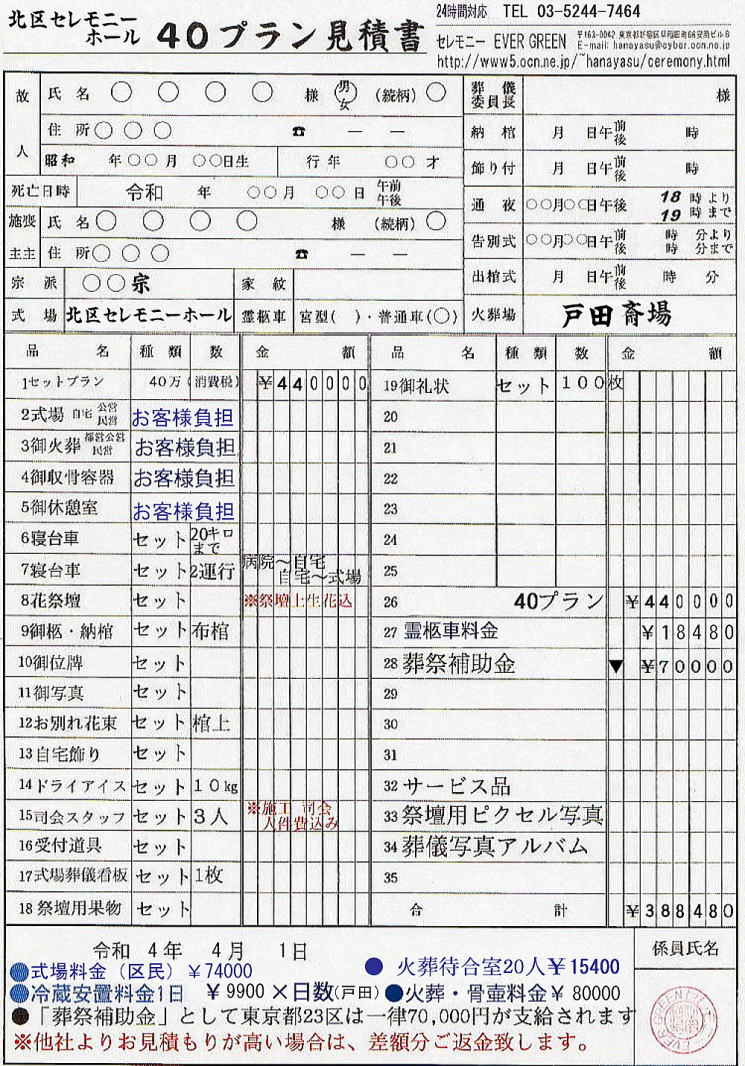 北区セレモニーホール 40プラン見積書
24時間対応 TEL 03-5244-7464
セレモニー EVER GREEN
E-mail: hanayasu@cyber.ocn.ne.jp
http://www5.ocn.ne.jp/~hanayasu/ceremony.html
故人 氏名 ○ ○ ○ ○ 様 男 女 (続柄) ○
住所 ○ ○ ○ ☎ ― ―
昭和 年○○月 ○○日生 行年 ○○才
死亡日時 令和 年 ○○月 ○○日 午前 午後
施喪主主 氏名 ○ ○ ○ ○ 様 (続柄) ○
住所 ○ ○ ○ ☎ ― ―
宗派 ○○宗 家紋
式場 北区セレモニーホール 霊柩車 宮型( )・普通車(○)
葬儀委員長 様
納棺 月 日午前後 時
飾り付 月 日午前後 時
通夜 ○○月○○日午後 18時より 19時まで
告別式 ○○月○○日午前後 時 分より 時 分まで
出棺式 月 日午前後 時 分
火葬場 戸田斎場
品名 種類 数 金額 品名 種類 数 金額
1セットプラン 40万(消費税) ¥440000
2式場 自宅 公営 民営 お客様負担
3御火葬 都営公営 民営 お客様負担
4御収骨容器 お客様負担
5御休憩室 お客様負担
6寝台車 セット 20キロまで
7寝台車 セット 2運行 病院~自宅 自宅~式場
8花祭壇 セット ※祭壇上生花込
9御柩・納棺 セット 布棺
10御位牌 セット
11御写真 セット
12お別れ花束 セット 棺上
13自宅飾り セット
14ドライアイス セット 10kg
15司会スタッフ セット 3人 ※施工 司会 人件費込み
16受付道具 セット
17式場葬儀看板 セット 1枚
18祭壇用果物 セット
19御礼状 セット 100枚
20
21
22
23
24
25
26 40プラン ¥440000
27 霊柩車料金 ¥18480
28 葬祭補助金 ▼ ¥70000
29
30
31
32 サービス品
33 祭壇用ピクセル写真
34 葬儀写真アルバム
35
合計 ¥388480
令和 4年 4月 1日
係員氏名
●式場料金(区民)¥74000 ● 火葬待合室20人¥15400
●冷蔵安置料金1日 ¥9900×日数(戸田)●火葬・骨壷料金¥80000
●「葬祭補助金」として東京都23区は一律70,000円が支給されます
※他社よりお見積もりが高い場合は、差額分ご返金致します。